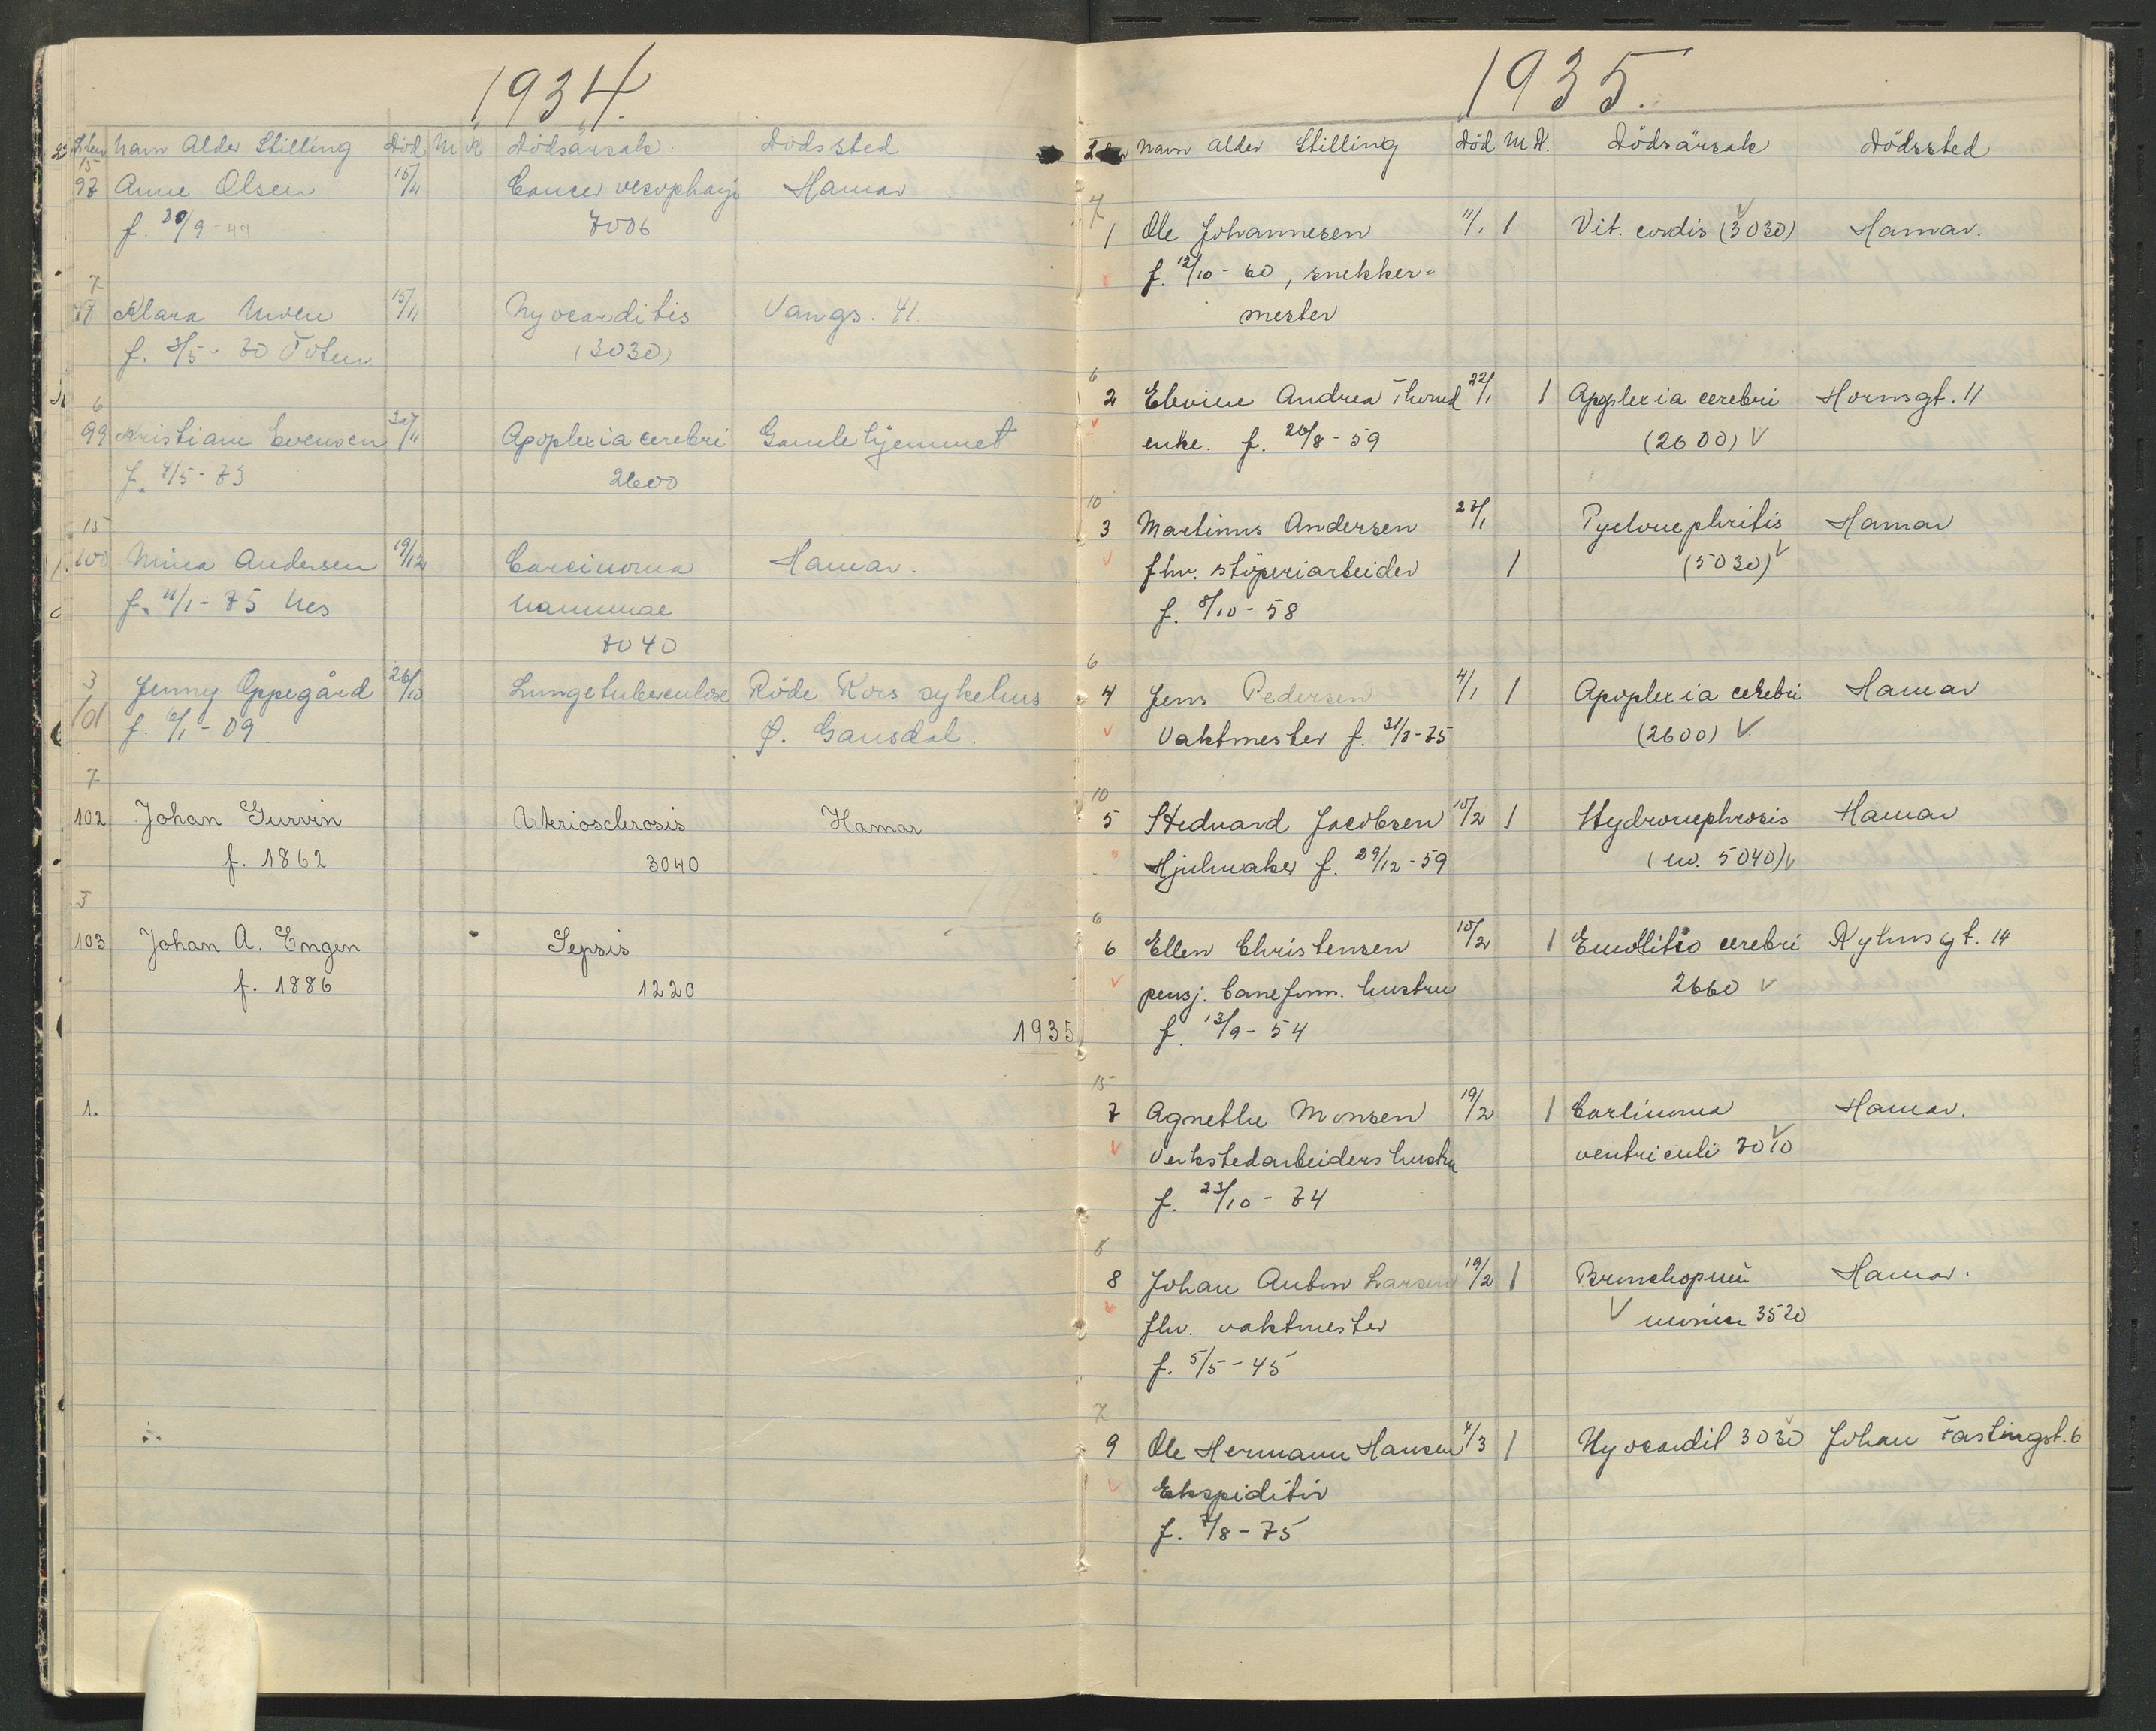 1934.
Navn Alder Stilling Död M K Dödsårsak Dödssted
15
97 Anne Olsen 15/11 Cancer oesophagi Hamar
f. 30/9-49 7006
7
Klara Moen 15/11 Myocarditis Vangs. 41.
f. 3/5-70 Toten (3030)
6
99 Kristiane Evensen Apoplexia cerebri Gamlehjemmet
f. 4/5-73 2600
15
100 Mina Andersen 19/12 Carcinoma Hamar.
f. 11/1-75 Nes mammae
7040
3
101 Jenny Oppegård 26/10 Lungetuberculose Röde Kors sykehus
f. -09 Ø. Gausdal.
7
102 Johan Gurvin Arteriosclerosis Hamar
f. 1862 3040
3
103 Johan A. Engen Sepsis
f. 1886 1220
1935
1.
1935.
Navn Alder Stilling Död M K. Dödsårsak Dödssted
7
1 Ole Johannesen 11/1 1 Vit. cordis (3030) Hamar.
f. 12/10-60, snekker=
mester
6
2 Elevine Andrea 22/1 1 Apoplexia cerebri Hornsgt. 11
enke. f. 26/8-59 (2600) V
10
3 Martinus Andersen 27/1 Pyelonephritis Hamar
fhv. stöperiarbeider 1 (5030) V
f. 8/10-58
6
4 Jens Pedersen 4/1 1 Apoplexia cerebri Hamar
Vaktmester f. 31/3-75 (2600) V
10
5 Hedvard Jacobsen 15/2 1 Hydronephrosis Hamar
Hjulmaker f. 29/12-59 (m. 5040) V
6
6 Ellen Christensen 15/2 1 Emollitio cerebri Ryhnsgt. 14
pensj. baneform. hustru 2660 V
f. 13/9-54
15
7 Agnethe Monsen 19/2 1 Carcinoma Hamar.
Verkstedarbeiders hustru ventriculi 7010
f. 23/10-74
8
8 Johan Anton Larsen 19/2 1 Bronchopneu Hamar.
fhv. vaktmester V monia 3520
f. 5/5-45
7
9 Ole Hermann Hansen 4/3 1 Myocardit 3030 Johan Fastingst. 6
Ekspeditör
f. 7/8-75